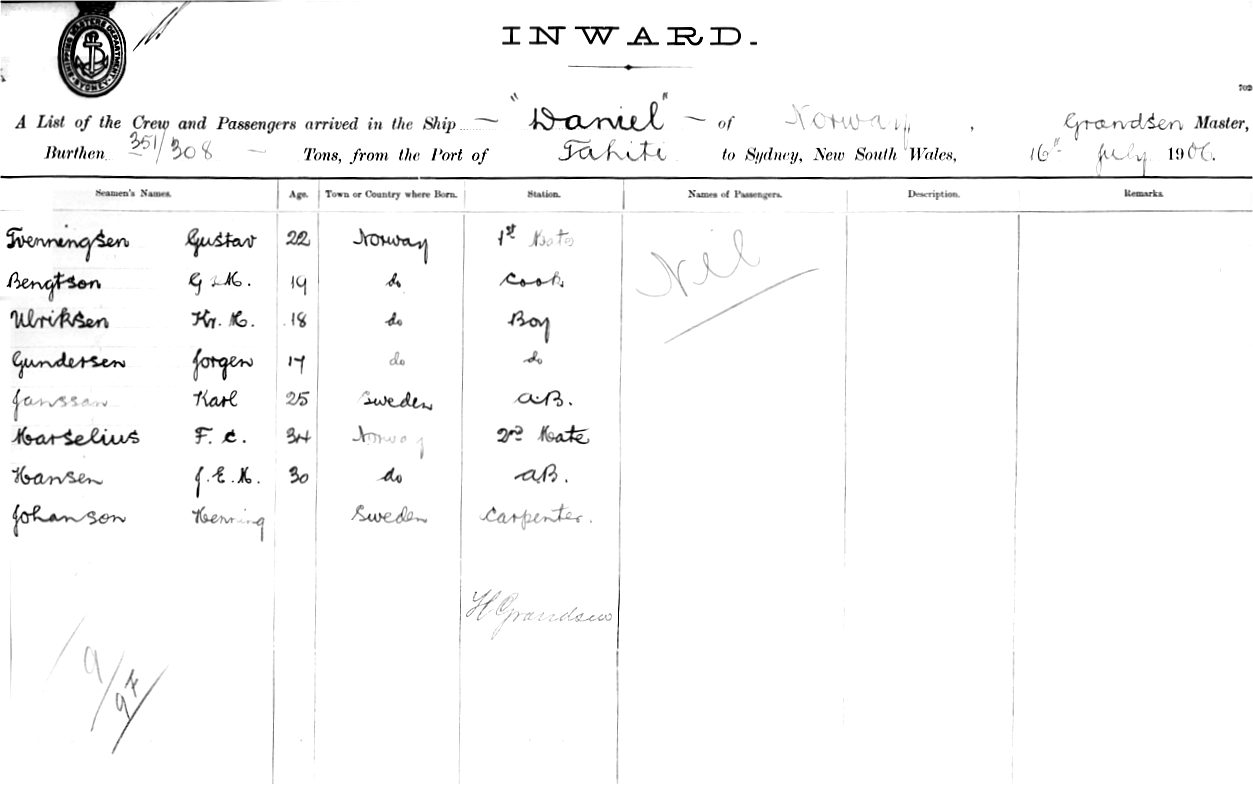 SHIPPING MASTERS DEPARTMENT SYDNEY
INWARD.
702
A List of the Crew and Passengers arrived in the Ship — "Daniel" — of Norway, Grandsen Master,
Burthen 351/308 — Tons, from the Port of Tahiti to Sydney, New South Wales, 16th July 1906.
Seamen's Names. Age. Town or Country where Born. Station. Names of Passengers. Description. Remarks.
Gustav 22 Norway 1st Mate Nil
Bengtson G M. 19 do Cook
Ulriksen Kr. M. 18 do Boy
Gundersen Jorgen 17 do do
Jansson Karl 25 Sweden A.B.
Marselius F. C. 34 Norway 2nd Mate
Hansen J. E. M. 30 do A.B.
Johanson Henning Sweden Carpenter.
H Grandsen
9/97